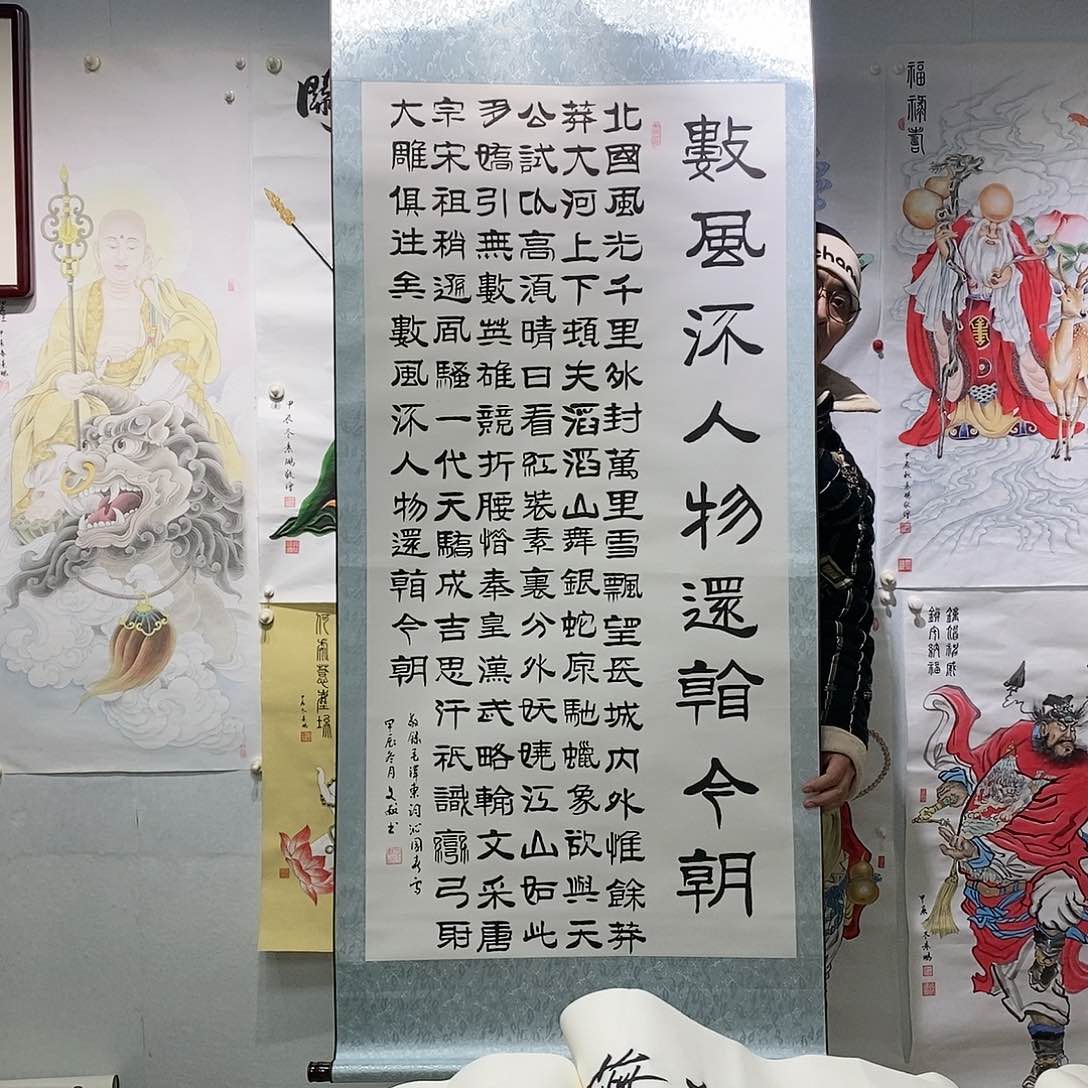 數風流人物還看今朝
北國風光千里冰封萬里雪飄望長城內外惟餘莽
莽大河上下頓失滔滔山舞銀蛇原馳蠟象欲與天
公試比高須晴日看紅裝素裹分外妖嬈江山如此
多嬌引無數英雄競折腰惜秦皇漢武略輸文采唐
宗宋祖稍遜風騷一代天驕成吉思汗祇識彎弓射
大雕俱往矣數風流人物還看今朝
敬錄毛澤東詞沁園春雪
甲辰冬月文敏書
福祿壽
鎮宅納福
chan